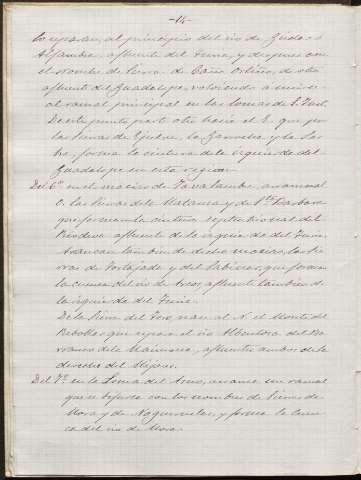 -14-
lo separan, al principio del rio de Gudar ó
Alfambra, afluente del Turia, y despues con
el nombre de Sierra de Caño Ortiño, de otro
afluente del Guadalope, volviendo á unirse
al ramal principal en las lomas de S. Just.
De este punto parte otro hacia el E. que por
las Sierras de Ejulve, la Garrocha, y la
forma la cintura de la izquierda del
Guadalope en esta region.
Del 6º en el macizo de Javalambre, arrancan al
O. las Sierras de la Matanza y de Sta. Barbara
que forman la cintura septentrional del
Riodeva afluente de la izquierda del Turia.
Avanzan tambien de dicho macizo, las Sier
ras de Tortajada y del Sabinar, que forman
la cuenca del rio de Arcos, afluente tambien de
la izquierda del Turia.
De la Sierra del Toro, van al N. el Monte del
Rebollar que separa el rio Albentosa del Ba
rranco de la Maimona, afluentes ambos de la
derecha del Mijares.
Del 7º en la Loma del Arco, avanza un ramal
que se bifurca con los nombres de Sierras de
Mora y de Nogueruelas, y forma la cuen
ca del rio de Mora.